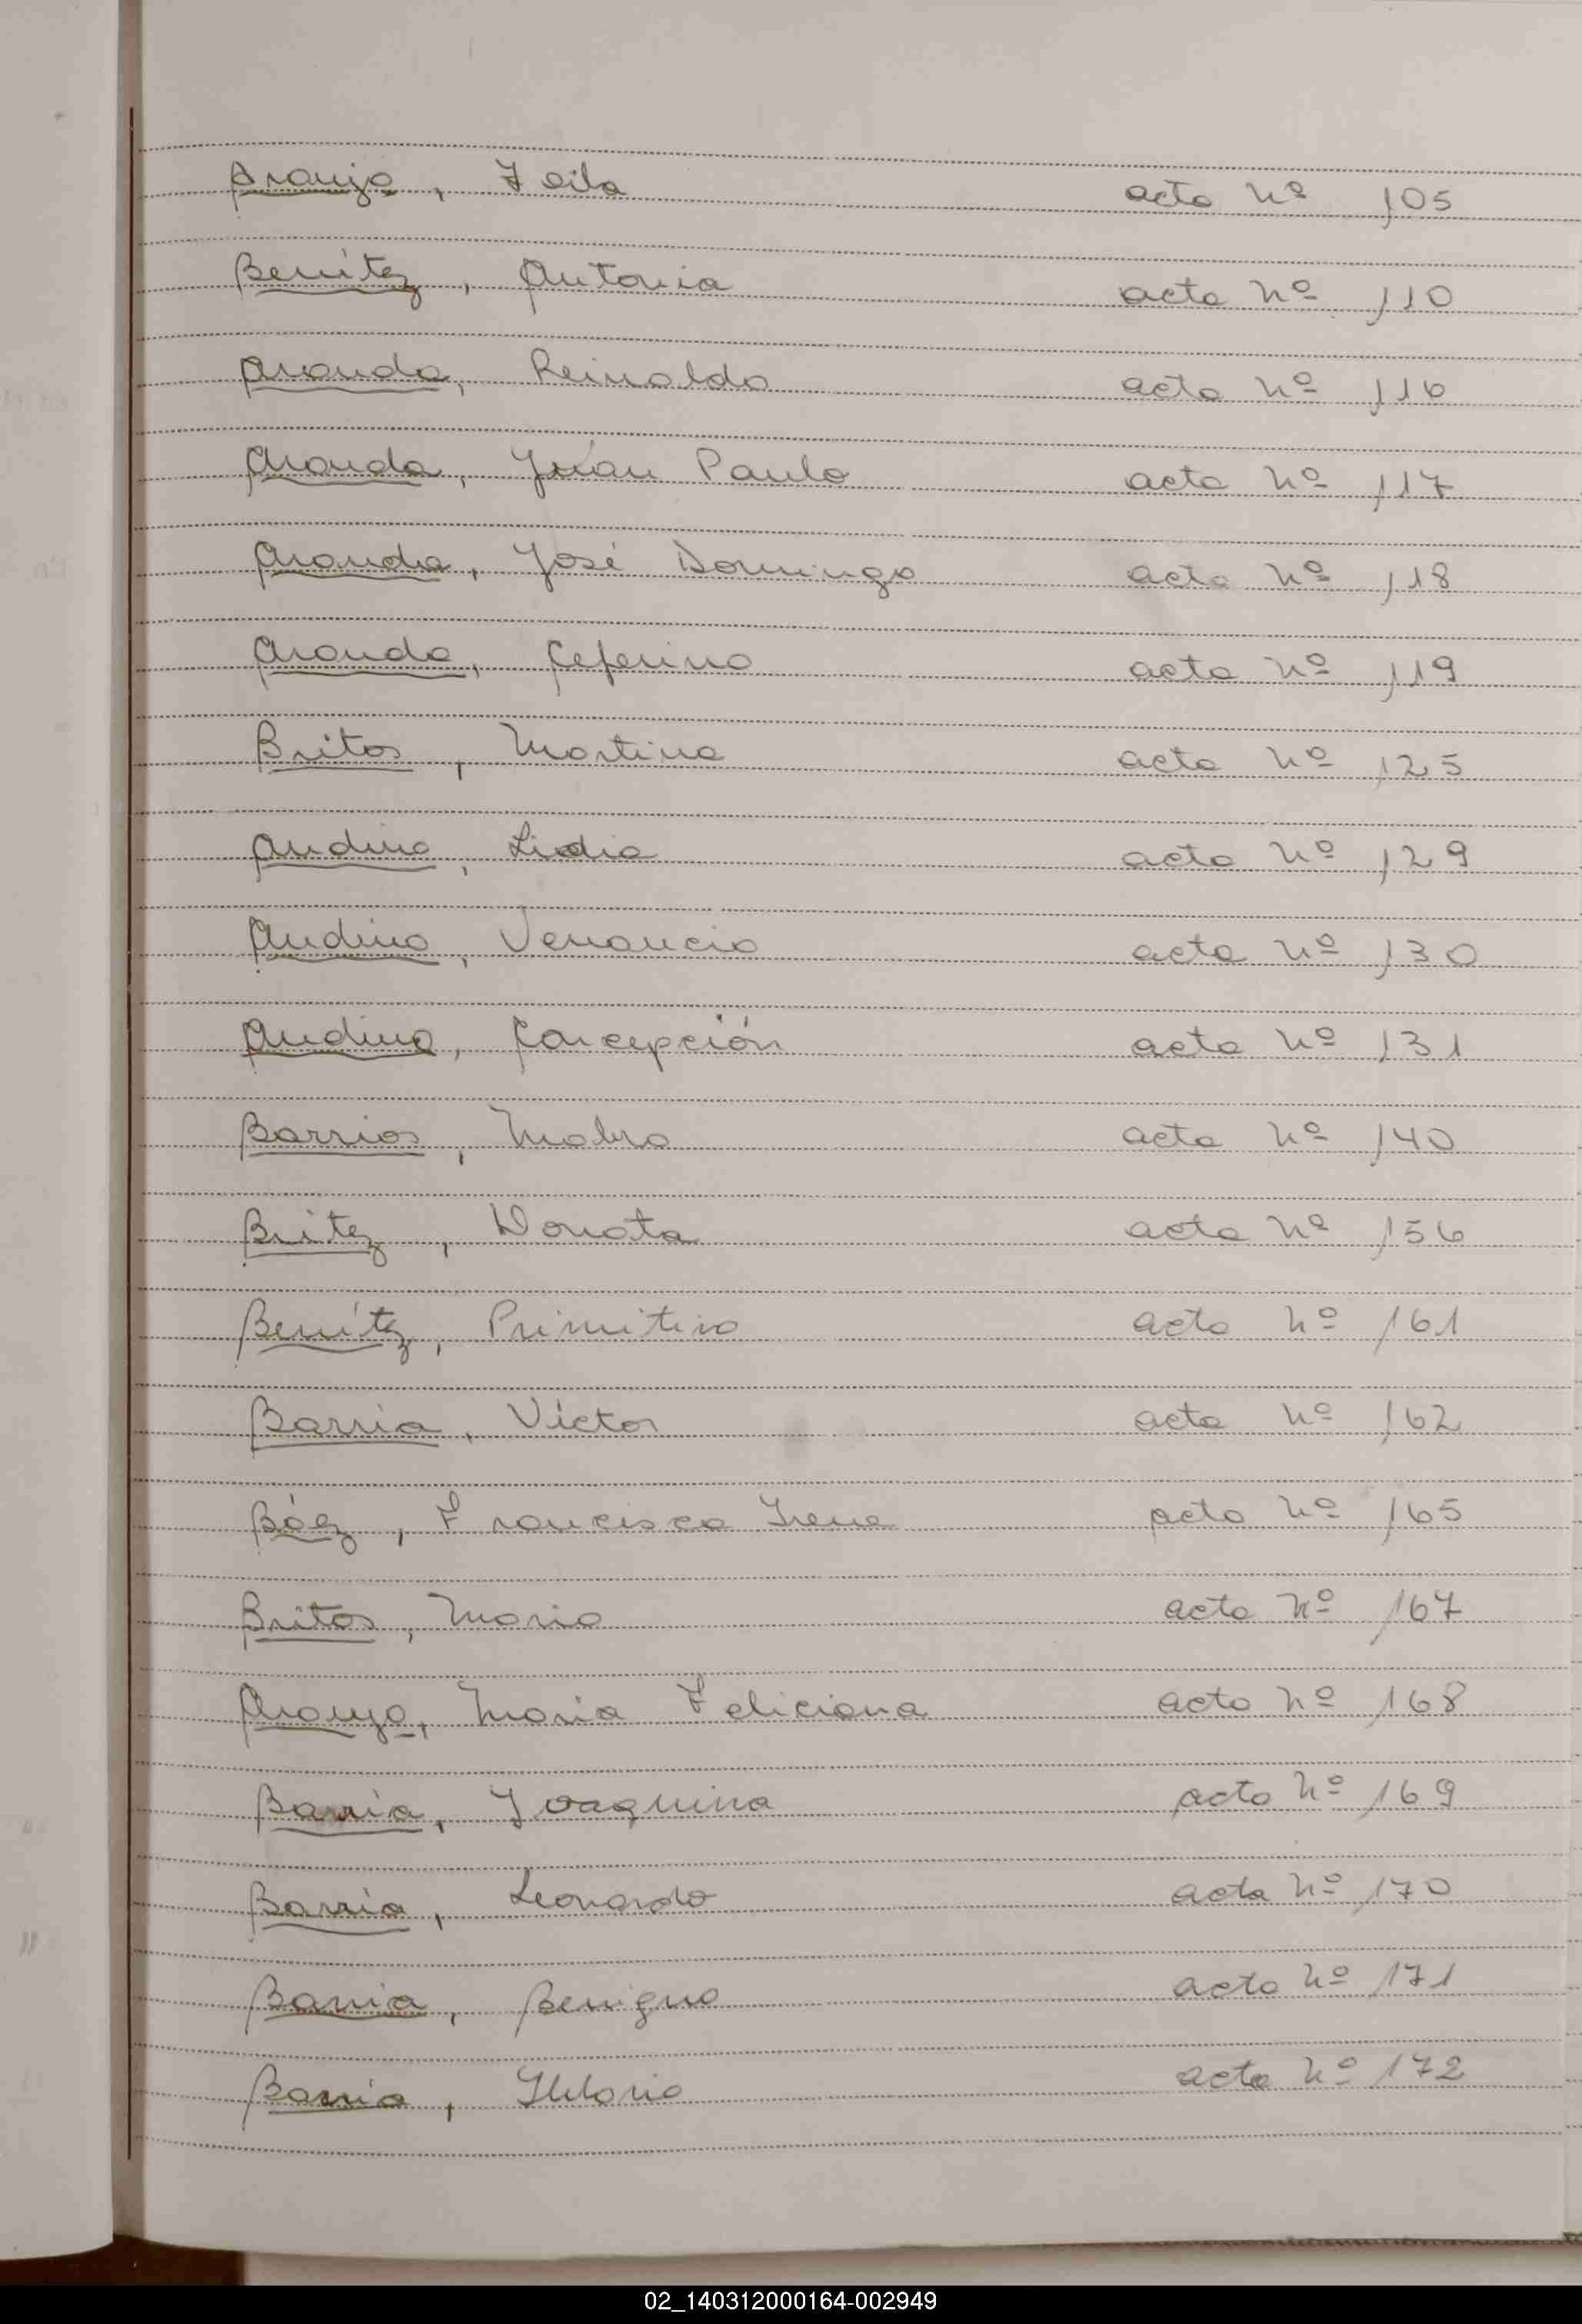 Araujo, Zoila acta nº 105
Benítez, Antonia acta nº 110
Aranda, Reinaldo acta nº 116
Aranda, Juan Paulo acta nº 117
Aranda, José Domingo acta nº 118
Aranda, Ceferino acta nº 119
Britos, Martina acta nº 125
Andino, Lidia acta nº 129
Andino, Venancio acta nº 130
Andino, Concepción acta nº 131
Barrios, acta nº 140
Britez, Donata acta nº 156
Benítez, Primitivo acta nº 161
Barría, Víctor acta nº 162
Báez, Francisca Irene acta nº 165
Britos, María acta nº 167
Araujo, María Feliciana acta nº 168
Barría, Joaquina acta nº 169
Barría, Leonardo acta nº 170
Barría, Benigno acta nº 171
Barría, acta nº 172
02_140312000164-002949